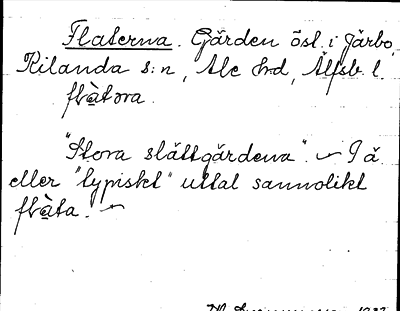 Flaterna. Gärden ösl. i Järbo,
Kilanda s:n, Ale hrd, Älfsb. l.
flàtǝra.
"Stora slättgärdena". – I ä.
eller "typiskt" uttal sannolikt
flàta. –
1932